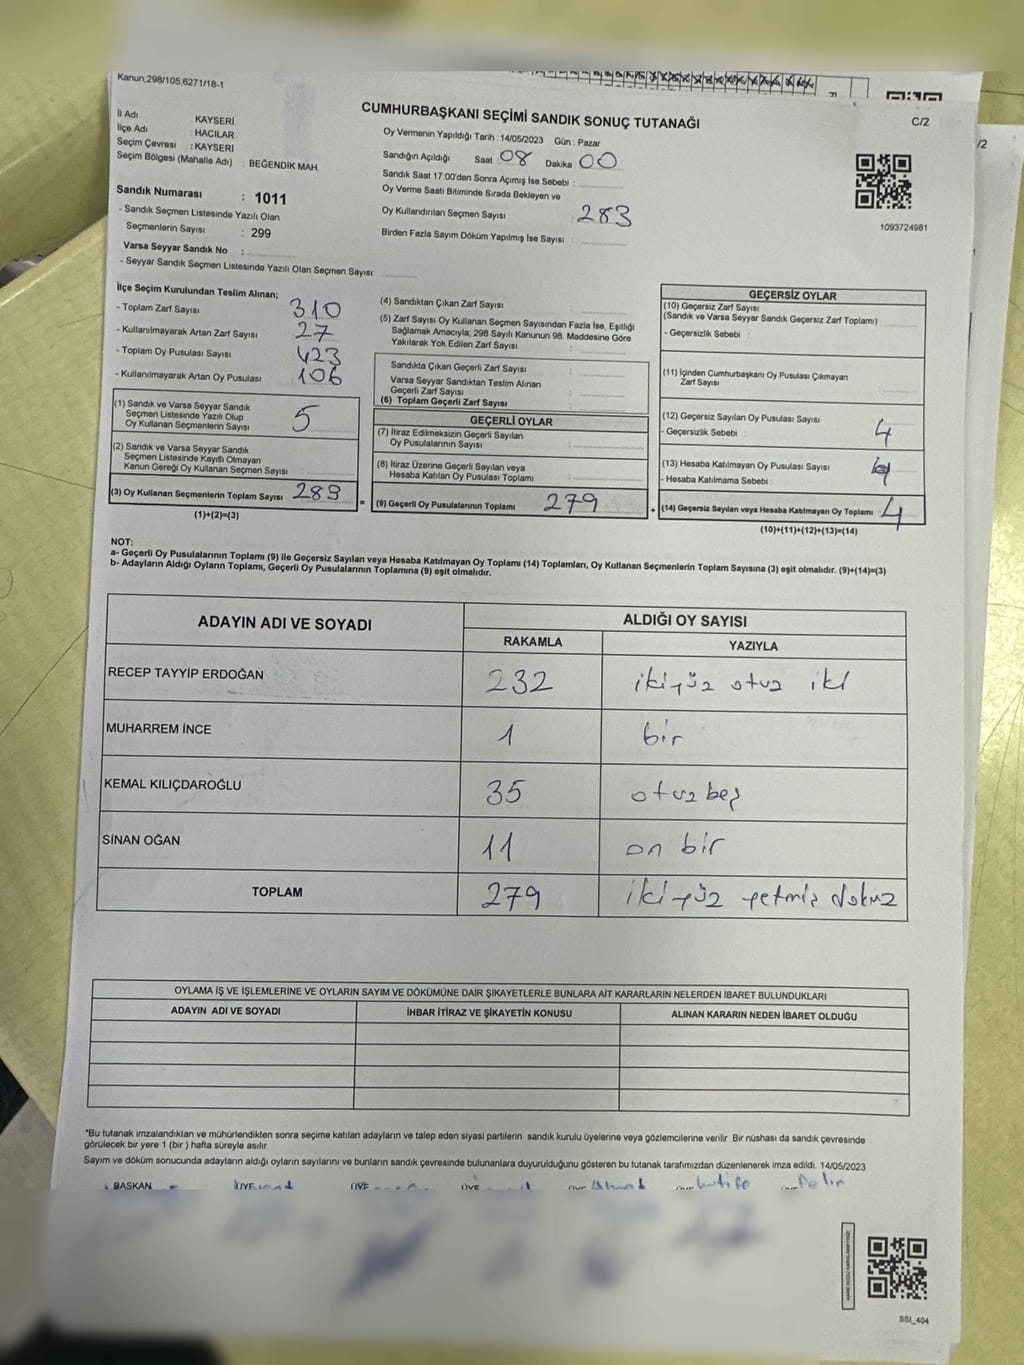 Kanun:298/105,6271/18-1
CUMHURBAŞKANI SEÇİMİ SANDIK SONUÇ TUTANAĞI
C/2
/2
İl Adı : KAYSERİ
İlçe Adı : HACILAR
Seçim Çevresi : KAYSERİ
Seçim Bölgesi (Mahalle Adı) : BEĞENDİK MAH.
Oy Vermenin Yapıldığı Tarih : 14/05/2023 Gün : Pazar
Sandığın Açıldığı Saat 08 Dakika 00
Sandık Saat 17:00'den Sonra Açımış İse Sebebi :
Oy Verme Saati Bitiminde Sırada Bekleyen ve
Oy Kullandırılan Seçmen Sayısı : 283
Birden Fazla Sayım Döküm Yapılmış İse Sayısı :
1093724981
Sandık Numarası : 1011
- Sandık Seçmen Listesinde Yazılı Olan
Seçmenlerin Sayısı : 299
Varsa Seyyar Sandık No :
- Seyyar Sandık Seçmen Listesinde Yazılı Olan Seçmen Sayısı:
İlçe Seçim Kurulundan Teslim Alınan;
- Toplam Zarf Sayısı 310
- Kullanılmayarak Artan Zarf Sayısı 27
- Toplam Oy Pusulası Sayısı 423
- Kullanılmayarak Artan Oy Pusulası 106
(1) Sandık ve Varsa Seyyar Sandık
Seçmen Listesinde Yazılı Olup
Oy Kullanan Seçmenlerin Sayısı 5
(2) Sandık ve Varsa Seyyar Sandık
Seçmen Listesinde Kayıtlı Olmayan
Kanun Gereği Oy Kullanan Seçmen Sayısı
(3) Oy Kullanan Seçmenlerin Toplam Sayısı 283
(1)+(2)=(3)
(4) Sandıktan Çıkan Zarf Sayısı
(5) Zarf Sayısı Oy Kullanan Seçmen Sayısından Fazla İse, Eşitliği
Sağlamak Amacıyla; 298 Sayılı Kanunun 98. Maddesine Göre
Yakılarak Yok Edilen Zarf Sayısı :
Sandıkta Çıkan Geçerli Zarf Sayısı
Varsa Seyyar Sandıktan Teslim Alınan
Geçerli Zarf Sayısı :
(6) Toplam Geçerli Zarf Sayısı :
GEÇERLİ OYLAR
(7) İtiraz Edilmeksizin Geçerli Sayılan
Oy Pusulalarının Sayısı
(8) İtiraz Üzerine Geçerli Sayılan veya
Hesaba Katılan Oy Pusulası Toplamı
= (9) Geçerli Oy Pusulalarının Toplamı 279
GEÇERSİZ OYLAR
(10) Geçersiz Zarf Sayısı
(Sandık ve Varsa Seyyar Sandık Geçersiz Zarf Toplamı) :
- Geçersizlik Sebebi :
(11) İçinden Cumhurbaşkanı Oy Pusulası Çıkmayan
Zarf Sayısı
(12) Geçersiz Sayılan Oy Pusulası Sayısı
- Geçersizlik Sebebi : 4
(13) Hesaba Katılmayan Oy Pusulası Sayısı
- Hesaba Katılmama Sebebi :
+ (14) Geçersiz Sayılan veya Hesaba Katılmayan Oy Toplamı 4
(10)+(11)+(12)+(13)=(14)
NOT:
a- Geçerli Oy Pusulalarının Toplamı (9) ile Geçersiz Sayılan veya Hesaba Katılmayan Oy Toplamı (14) Toplamları, Oy Kullanan Seçmenlerin Toplam Sayısına (3) eşit olmalıdır. (9)+(14)=(3)
b- Adayların Aldığı Oyların Toplamı, Geçerli Oy Pusulalarının Toplamına (9) eşit olmalıdır.
ADAYIN ADI VE SOYADI
ALDIĞI OY SAYISI
RAKAMLA YAZIYLA
RECEP TAYYİP ERDOĞAN 232 ikiyüz otuz iki
MUHARREM İNCE 1 bir
KEMAL KILIÇDAROĞLU 35 otuz beş
SİNAN OĞAN 11 on bir
TOPLAM 279 ikiyüz yetmiş dokuz
OYLAMA İŞ VE İŞLEMLERİNE VE OYLARIN SAYIM VE DÖKÜMÜNE DAİR ŞİKAYETLERLE BUNLARA AİT KARARLARIN NELERDEN İBARET BULUNDUKLARI
ADAYIN ADI VE SOYADI İHBAR İTİRAZ VE ŞİKAYETİN KONUSU ALINAN KARARIN NEDEN İBARET OLDUĞU
*Bu tutanak imzalandıktan ve mühürlendikten sonra seçime katılan adayların ve talep eden siyasi partilerin sandık kurulu üyelerine veya gözlemcilerine verilir. Bir nüshası da sandık çevresinde
görülecek bir yere 1 (bir) hafta süreyle asılır.
Sayım ve döküm sonucunda adayların aldığı oyların sayılarını ve bunların sandık çevresinde bulunanlara duyurulduğunu gösteren bu tutanak tarafımızdan düzenlenerek imza edildi. 14/05/2023
BAŞKAN ÜYE ÜYE ÜYE
SSI_404